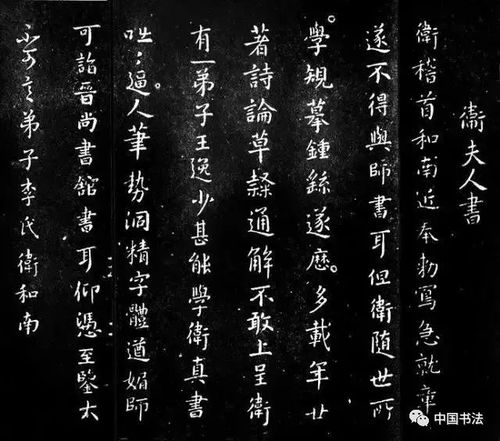 衛夫人書
衛稽首和南近奉勑寫急就章
遂不得與師書耳但衛隨世所
學規摹鍾繇遂歷多載年廿
著詩論草隸通解不敢上呈衛
有一弟子王逸少甚能學衛真書
咄〻逼人筆勢洞精字體遒媚師
可詣晉尚書館書耳仰憑至鑒大
不可言弟子李氏衛和南
中国书法